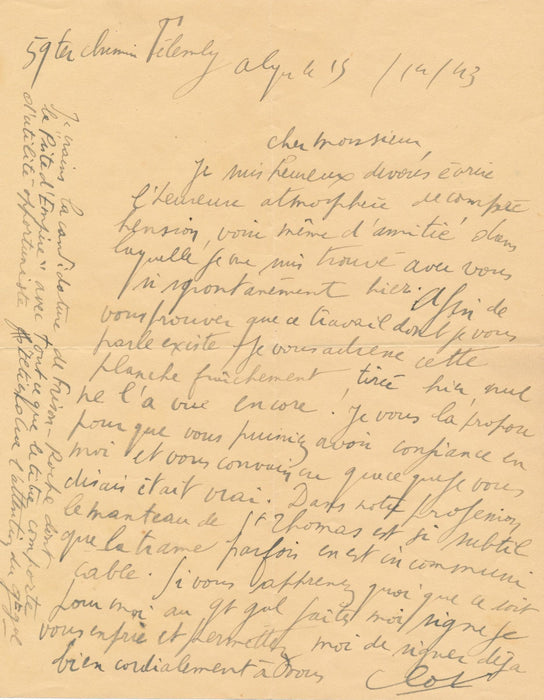 59ter chemin Télemly
Alger le 15 / 12 / 43
cher monsieur,
Je suis heureux de vous écrire
l'heureuse atmosphère de compré
hension, voire même d'amitié dans
laquelle je me suis trouvé avec vous
si spontanément hier. Afin de
vous prouver que ce travail dont je vous
parle existe je vous adresse cette
planche fraîchement tirée hier, nul
ne l'a vue encore! Je vous la propose
pour que vous puissiez avoir confiance en
moi et vous convaincre que ce que je vous
disais était vrai. Dans notre profession
le manteau de St Thomas est si subtil
que la trame parfois en est incommuni
cable. Si vous apprenez quoi que ce soit
pour moi au gt gal faites moi signe je
vous en prie et permettez moi de signer déjà
bien cordialement à vous
Je crains la candidature de Frison-Roche dont
la "Piste d'Empire" avec tout ce que le titre comporte
d'utilité-opportuniste l'attention du gt gal